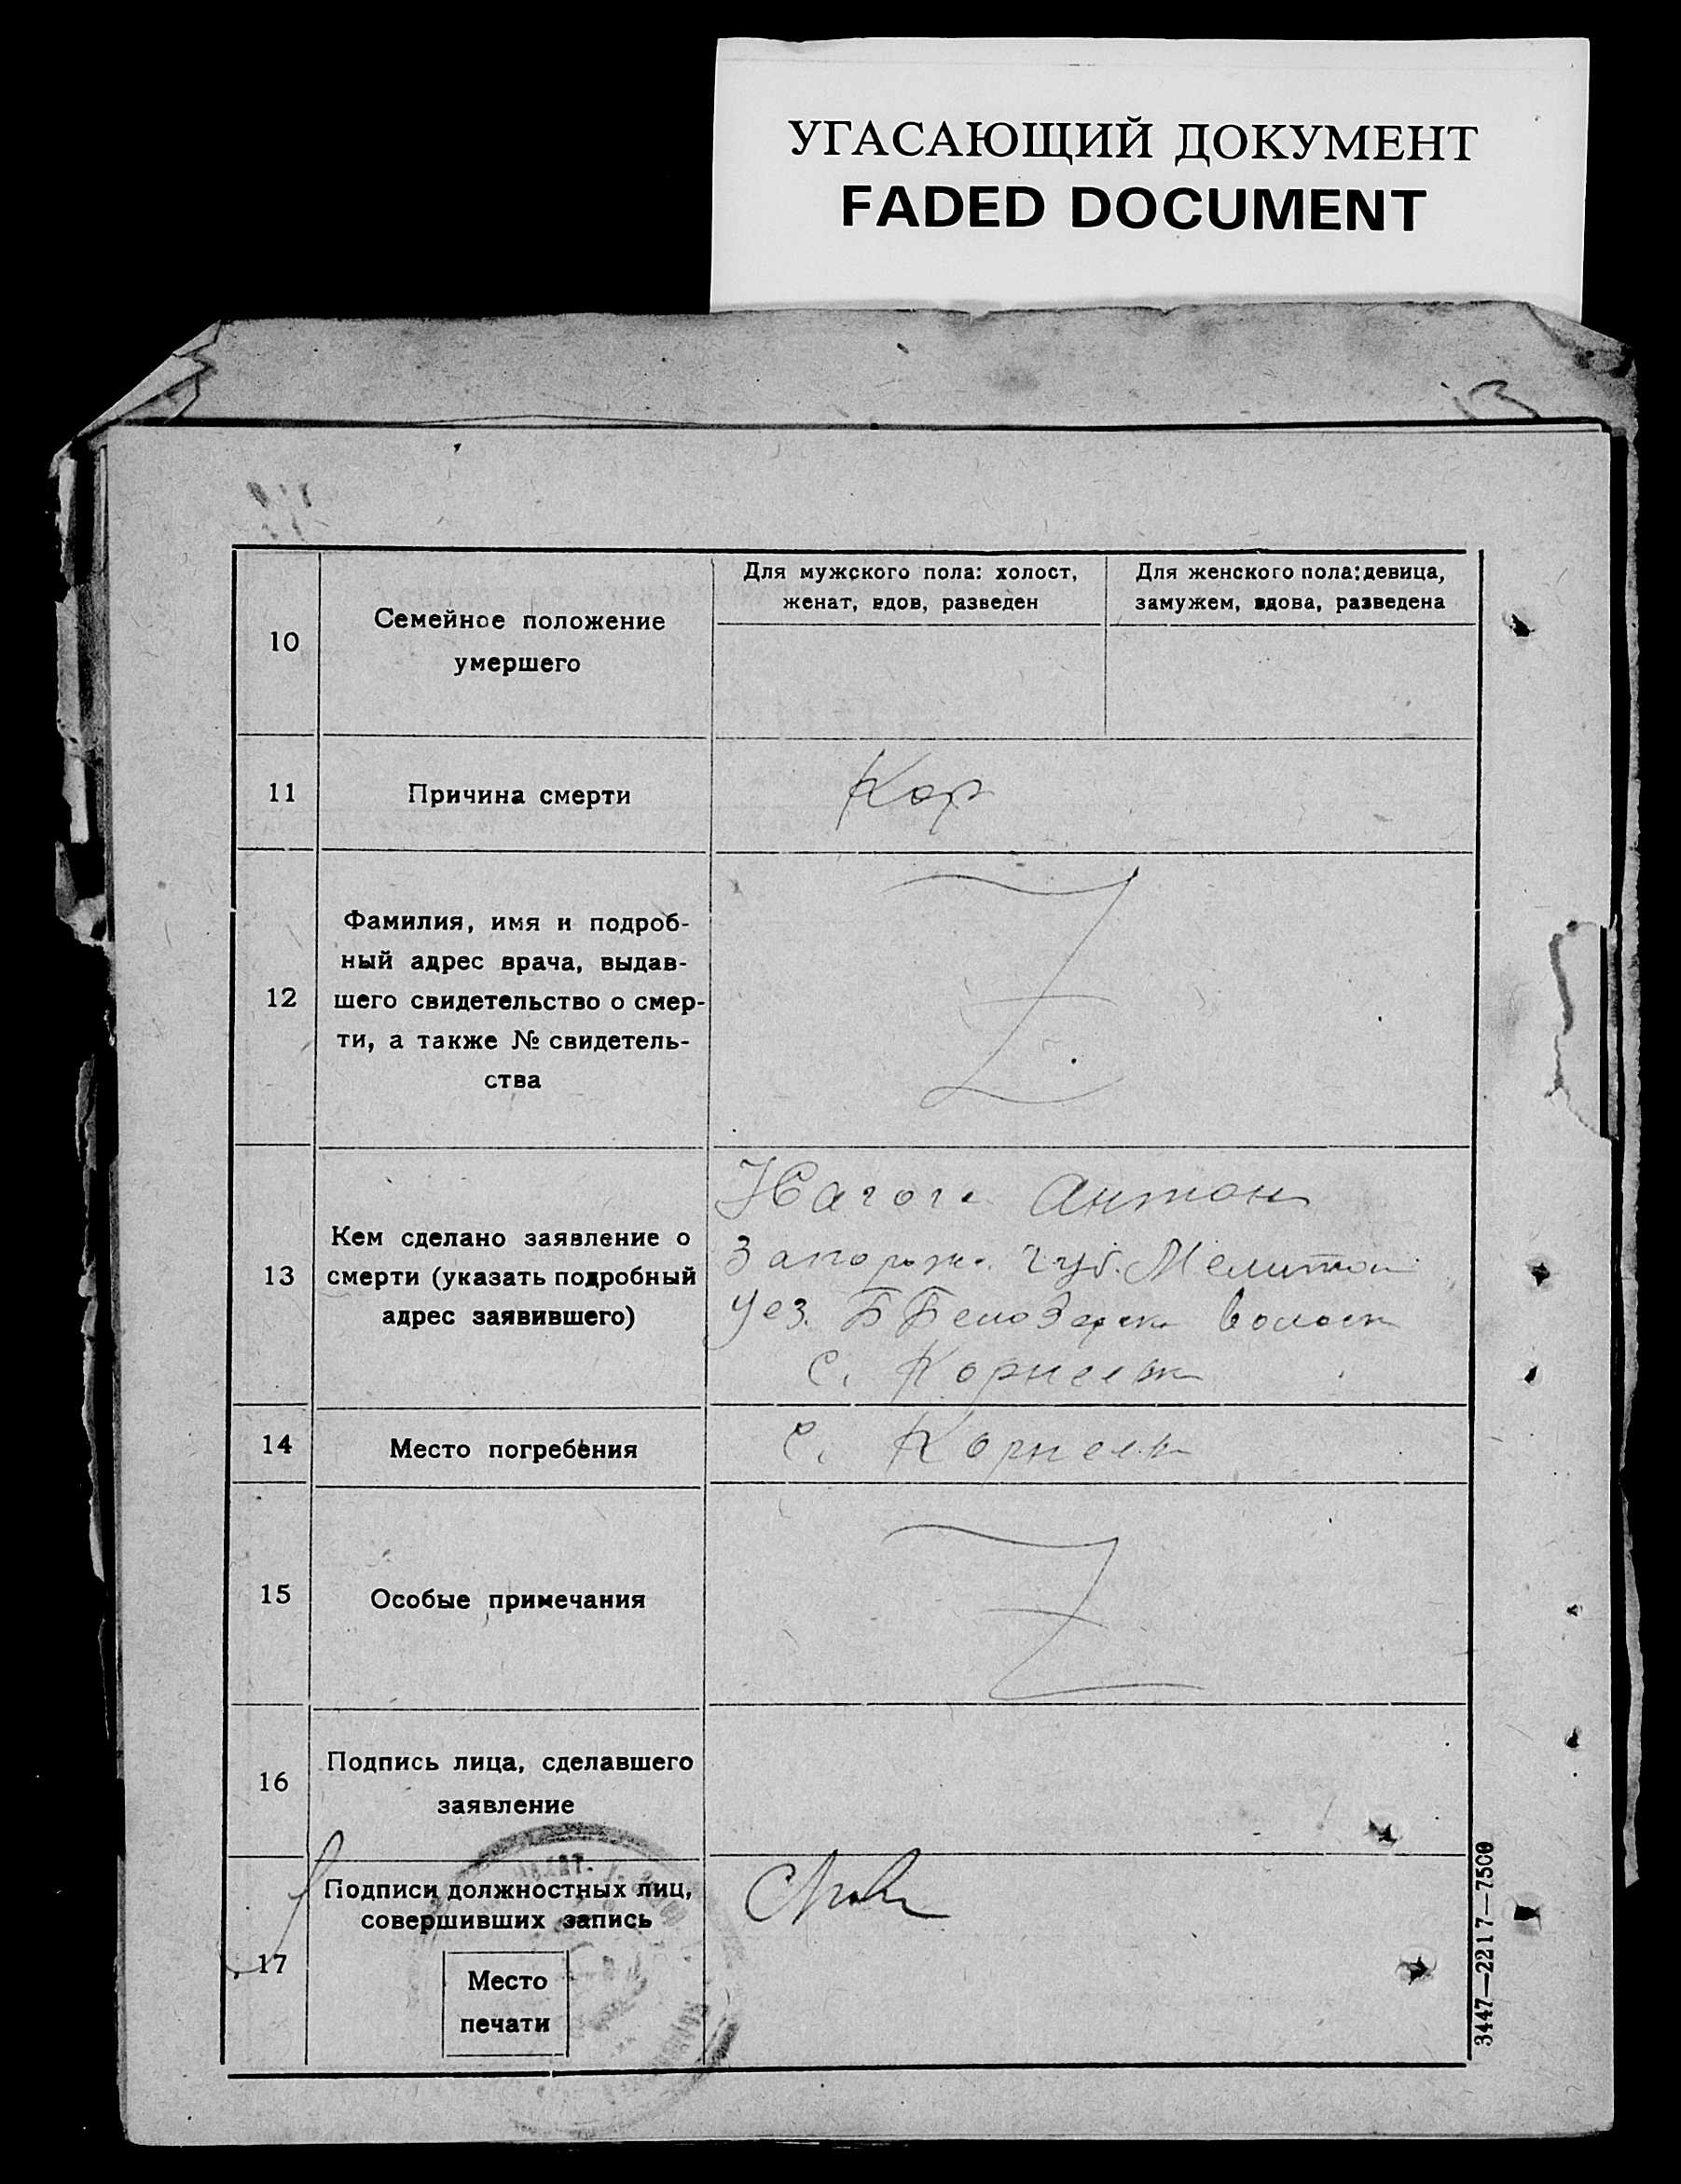 УГАСАЮЩИЙ ДОКУМЕНТ
FADED DOCUMENT
10
Семейное положение
умершего
Для мужского пола: холост,
женат, вдов, разведен
Для женского пола: девица,
замужем, вдова, разведена
11
Причина смерти
Кор
12
Фамилия, имя и подроб-
ный адрес врача, выдав-
шего свидетельство о смер-
ти, а также № свидетель-
ства
13
Кем сделано заявление о
смерти (указать подробный
адрес заявившего)
Антон
Запорож. губ. Мелитоп
Уез. Б Белозерск волост
с. Корнеевк
14
Место погребения
с. Корнеевк
15
Особые примечания
16
Подпись лица, сделавшего
заявление
17
Подписи должностных лиц,
совершивших запись
Место
печати
3447—2217—7500